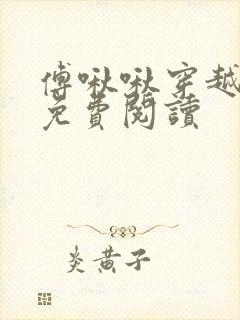 傅啾啾穿越
免費閱讀
炎黃子